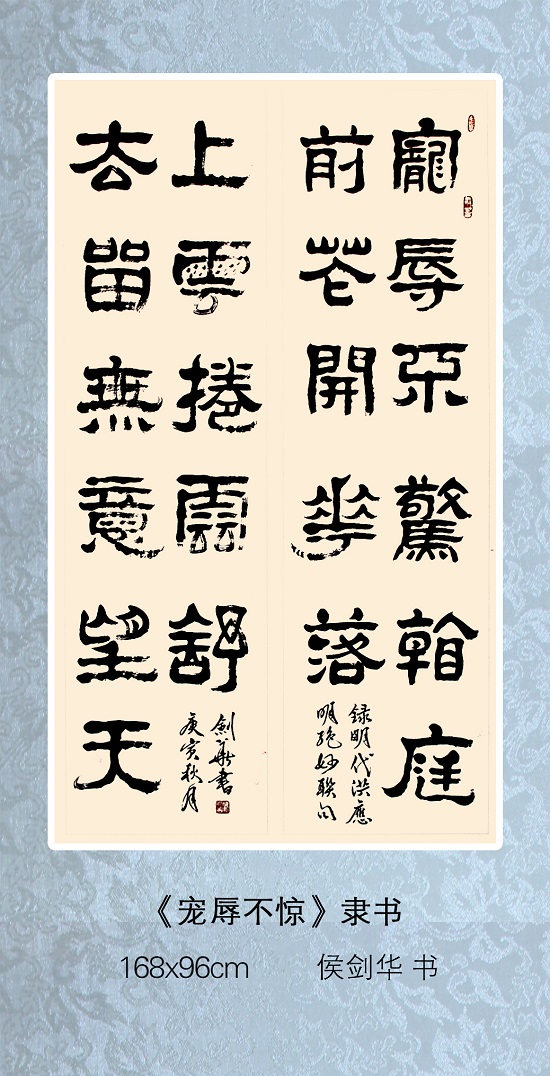 寵辱不驚看庭
前花開華落
録明代洪應
明絶妙聯句
去留無意望天
上雲捲雲舒
庚寅秋月
劍華書
《宠辱不惊》隶书
168x96cm 侯剑华 书